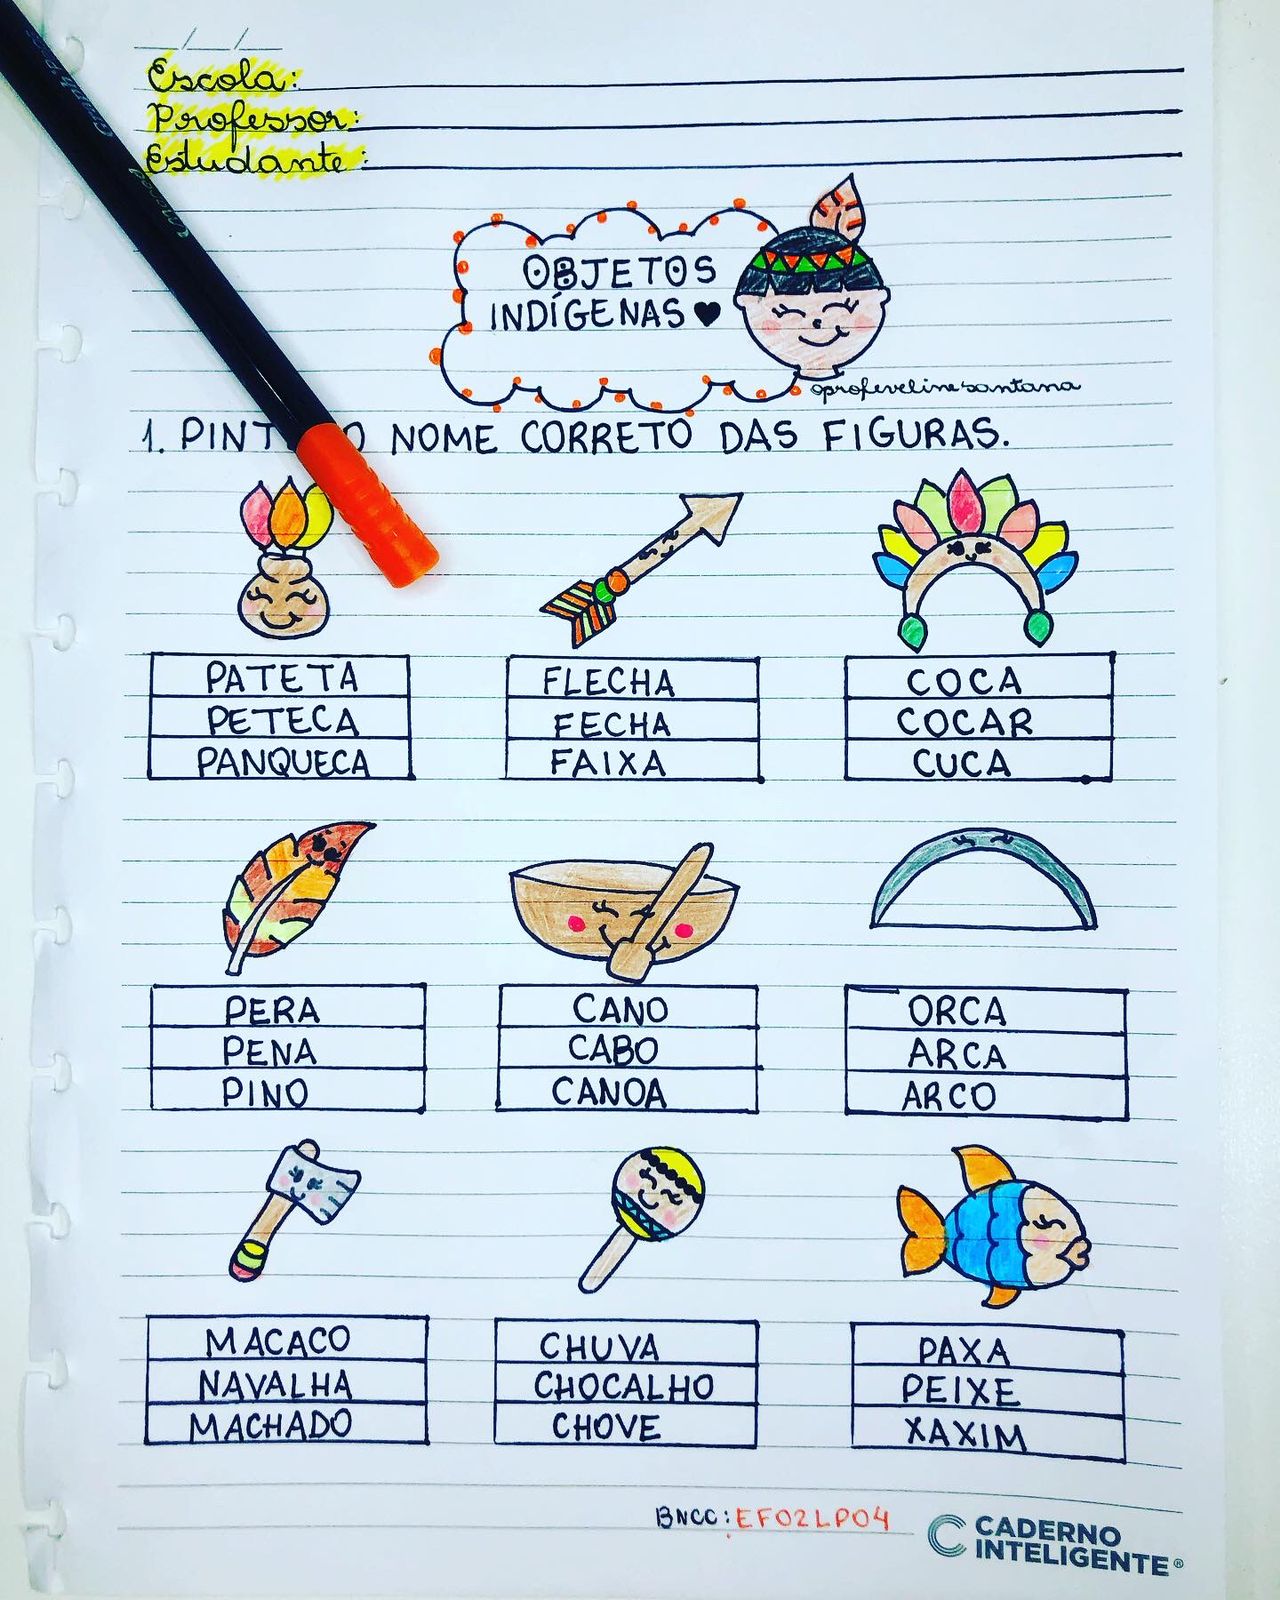 Escola:
Professor:
Estudante:
OBJETOS
INDÍGENAS
@profevelinesantana
1. PINT O NOME CORRETO DAS FIGURAS.
PATETA
PETECA
PANQUECA
FLECHA
FECHA
FAIXA
COCA
COCAR
CUCA
PERA
PENA
PINO
CANO
CABO
CANOA
ORCA
ARCA
ARCO
MACACO
NAVALHA
MACHADO
CHUVA
CHOCALHO
CHOVE
PAXA
PEIXE
XAXIM
BNCC: EF02LP04
CADERNO
INTELIGENTE®